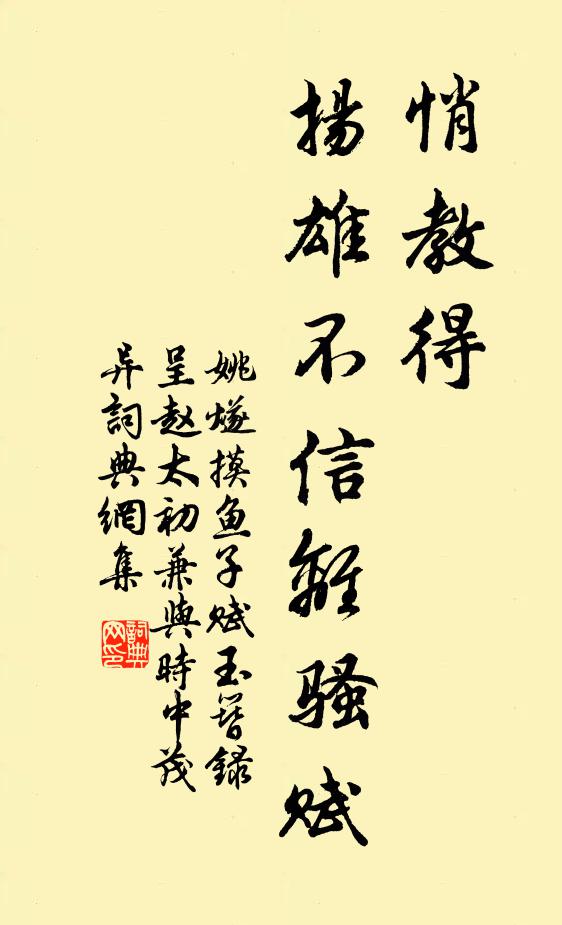 悄教得
揚雄不信離騷赋
姚燧摸鱼子赋玉簪録
呈赵太初兼與時中茂
异詞典網集
詞典网印